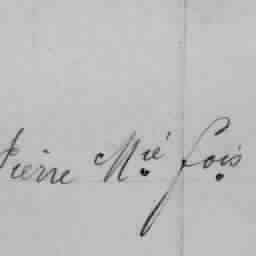 Pierre Mié fois